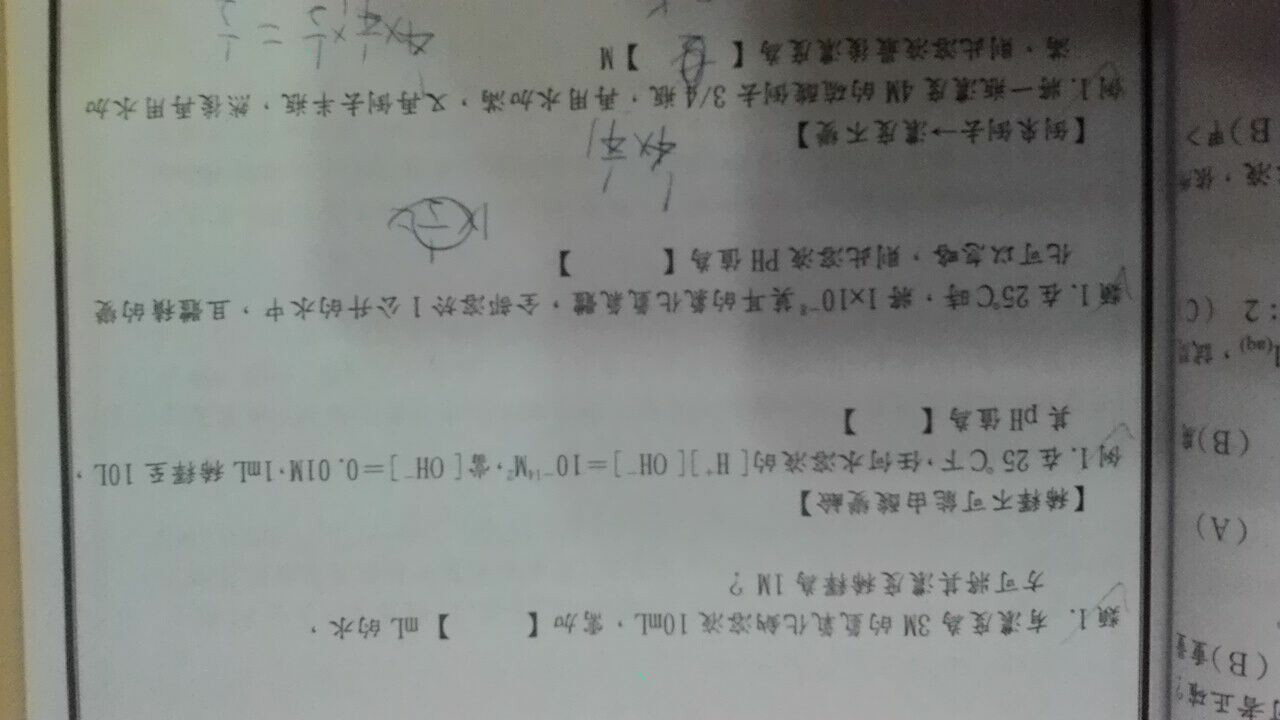 者正確?
(B)重量
(A)
(B)
(aq)，試
: 2 (C
液，依
B)甲>
類1. 有濃度為 3M 的氫氧化鈉溶液 10mL，需加【 】mL 的水，
方可將其濃度稀釋為 1M？
【稀釋不可能由酸變鹼】
例1. 在 25 ℃下，任何水溶液的[ H⁺ ][ OH⁻ ]=10⁻¹⁴M²，當[ OH⁻ ]=0.01M，1mL 稀釋至 10L，
其 pH 值為【 】
類1. 在 25℃時，將 1×10⁻⁸ 莫耳的氯化氫氣體，全部溶於 1 公升的水中，且體積的變
化可以忽略，則此溶液 PH 值為【 】
1×1/2
4×1/4
【倒來倒去→濃度不變】
例1. 將一瓶濃度 4M 的硫酸倒去 3/4 瓶，再用水加滿，又再倒去半瓶，然後再用水加
滿，則此溶液最後濃度為【 】M
4×1/4×1/2 = 1/2